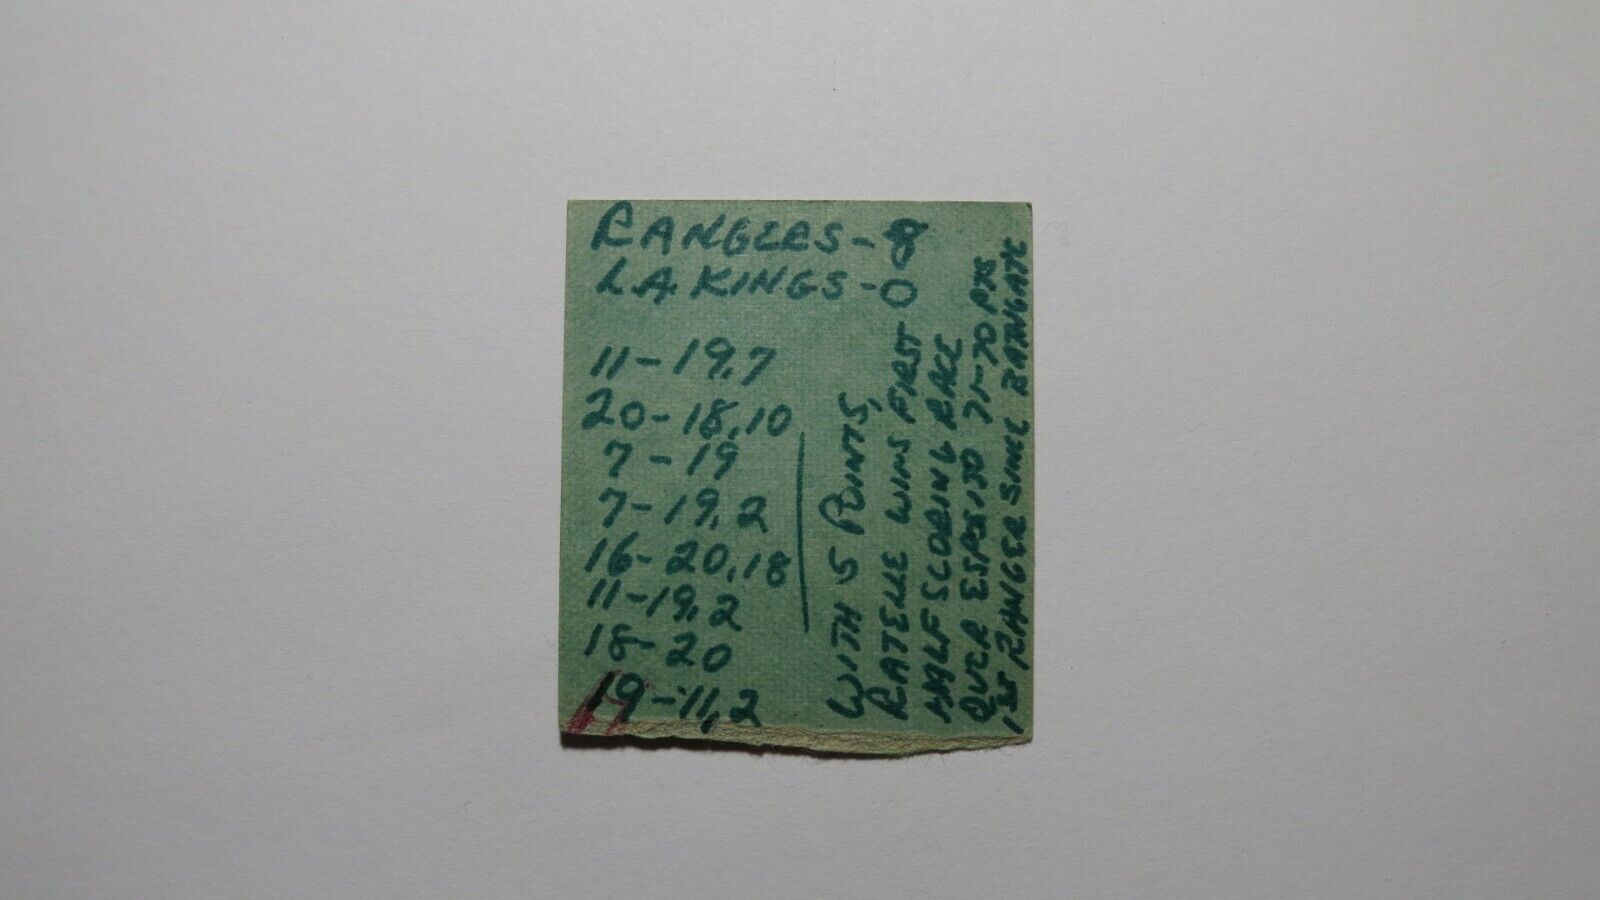 RANGERS - 8
L.A. KINGS - 0
11 - 19, 7
20 - 18, 10
7 - 19
7 - 19, 2
16 - 20, 18
11 - 19, 2
18 - 20
19 - 11, 2
WITH 5 POINTS,
RATELLE WINS FIRST
HALF SCORING RACE
OVER ESPOSITO 71-70 PTS
1ST RANGER SINCE BATHGATE